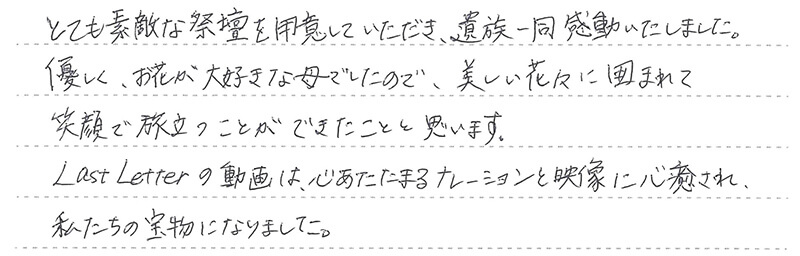 とても素敵な祭壇を用意していただき、遺族一同感動いたしました。
優しく、お花が大好きな母でしたので、美しい花々に囲まれて
笑顔で旅立つことができたことと思います。
Last Letterの動画は、心あたたまるナレーションと映像に心癒され、
私たちの宝物になりました。